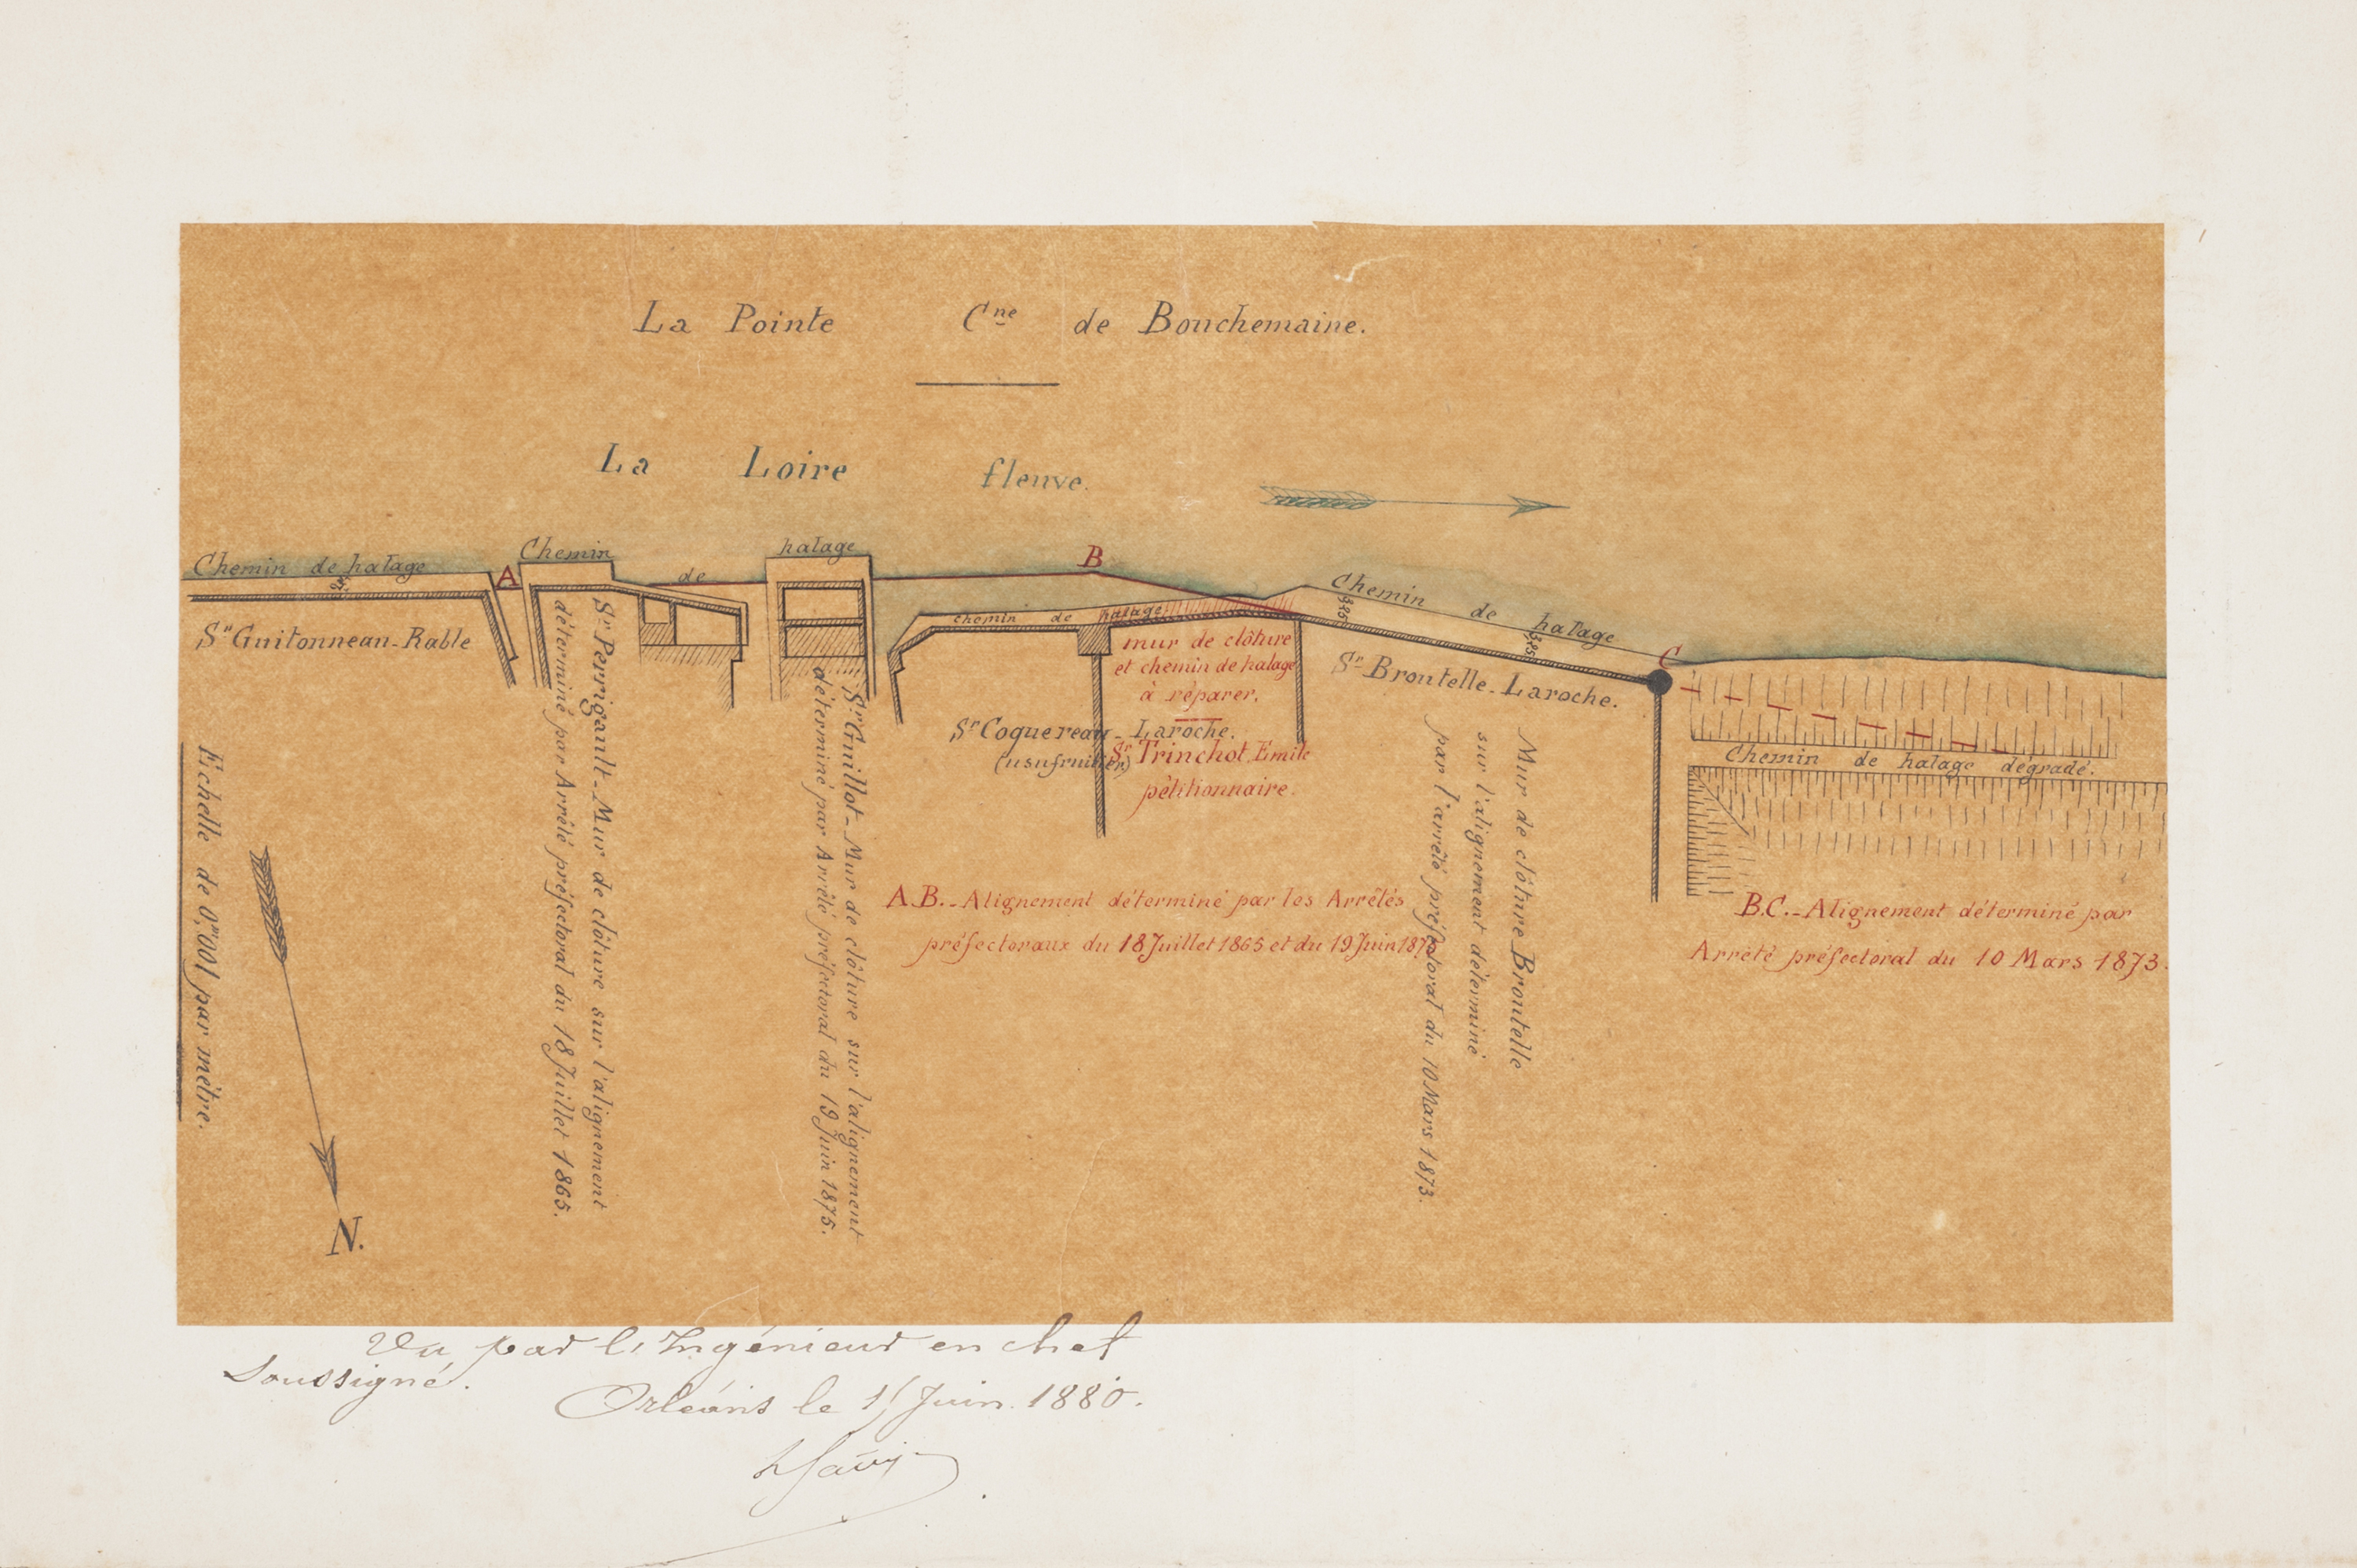 La Pointe Cne de Bouchemaine.
La Loire fleuve.
Chemin de halage
A
Chemin
de
halage
B
chemin de halage
Chemin de halage
3,25
3,25
C
Sr Guitonneau-Rable
mur de clôture
et chemin de halage
à réparer.
Sr Coquereau-Laroche.
(usufruitier)
Sr Trinchot Emile
pétitionnaire.
Sr Broutelle-Laroche.
Chemin de halage dégradé.
Sr Perrigault-Mur de clôture sur l'alignement
déterminé par Arrêté préfectoral du 18 Juillet 1865.
Sr Guillot-Mur de clôture sur l'alignement
déterminé par Arrêté préfectoral du 19 Juin 1875.
Mur de clôture Broutelle
sur l'alignement déterminé
par l'arrêté préfectoral du 10 Mars 1873.
A.B.-Alignement déterminé par les Arrêtés
préfectoraux du 18 Juillet 1865 et du 19 Juin 1875
B.C.-Alignement déterminé par
Arrêté préfectoral du 10 Mars 1873.
Echelle de 0,m001 par mètre.
N.
Vu par l'Ingénieur en chef
soussigné.
Orléans le Juin 1880.